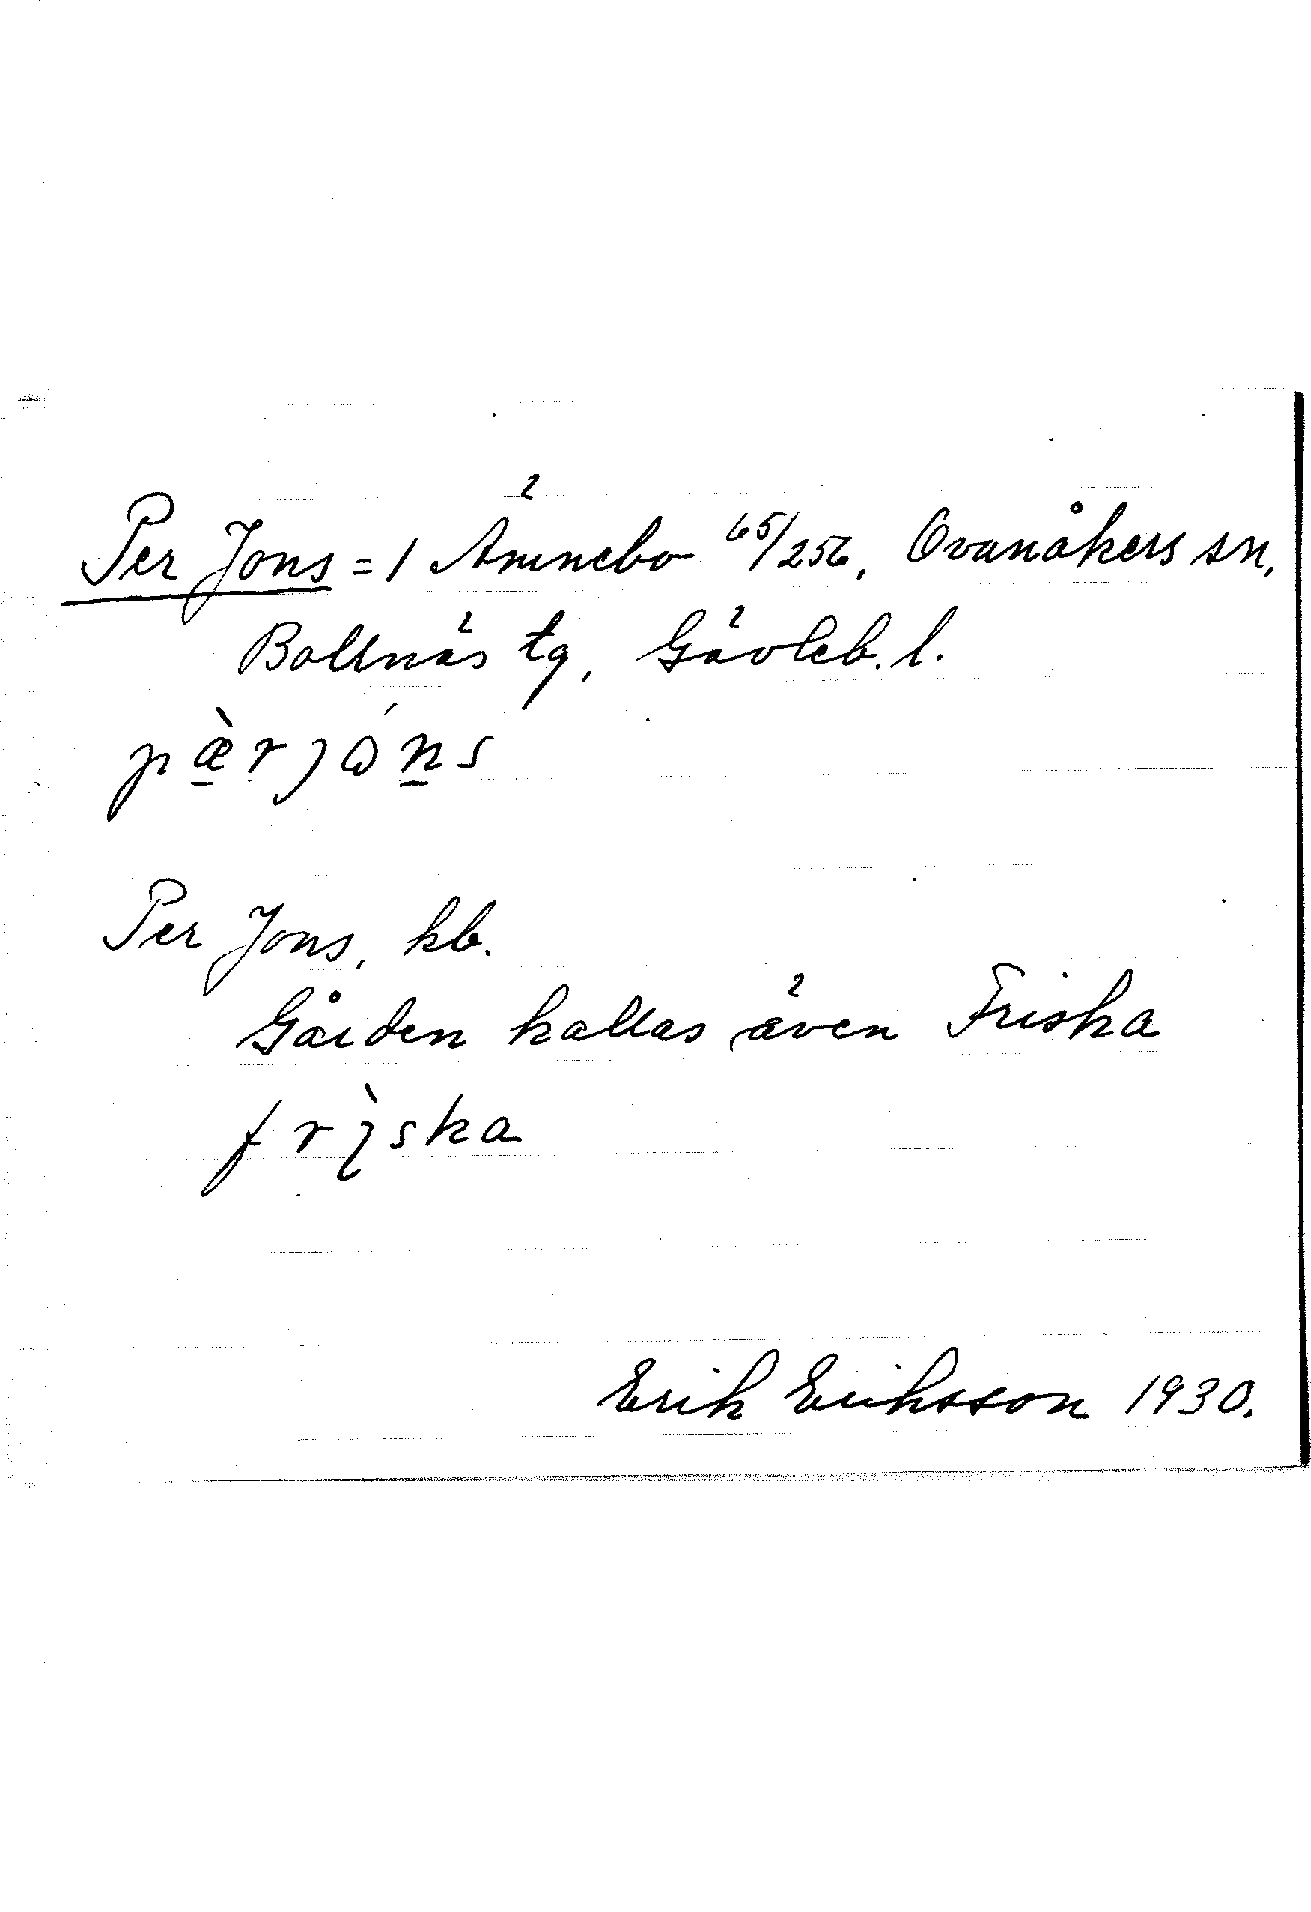 Per Jons = 1 Ämnebo 65/256, Ovanåkers sn,
Bollnäs tg, Gävleb. l.
pæ̠̀rjɷ́n̠s
Per Jons, kb.
Gården kallas även Friska
frìska
Erik Eriksson 1930.